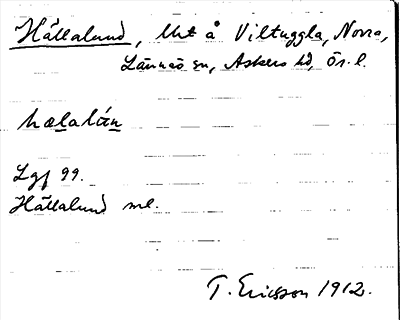 Hällalund, lht å Viltuggla, Norra,
Lännäs sn, Askers hd, Ör. l.
hælalún
Lgf 99.
Hällalund ml.
T. Ericsson 1912.